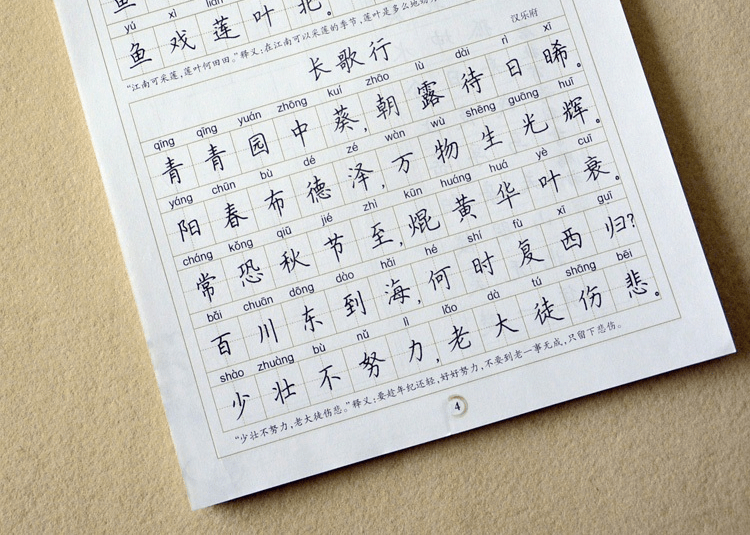 鱼
yú xì lián
鱼戏莲叶北。
“江南可采莲,莲叶何田田。”释义:在江南可以采莲的季节,莲叶是多么地
长歌行
汉乐府
qīng qīng yuán zhōng kuí zhāo lù dài rì xī
青青园中葵,朝露待日晞。
yáng chūn bù dé zé wàn wù shēng guāng huī
阳春布德泽,万物生光辉。
cháng kǒng qiū jié zhì kūn huáng huá yè cuī
常恐秋节至,焜黄华叶衰。
bǎi chuān dōng dào hǎi hé shí fù xī guī
百川东到海,何时复西归?
shào zhuàng bù nǔ lì lǎo dà tú shāng bēi
少壮不努力,老大徒伤悲。
“少壮不努力,老大徒伤悲。”释义:要趁年纪还轻,好好努力,不要到老一事无成,只留下悲伤。
4